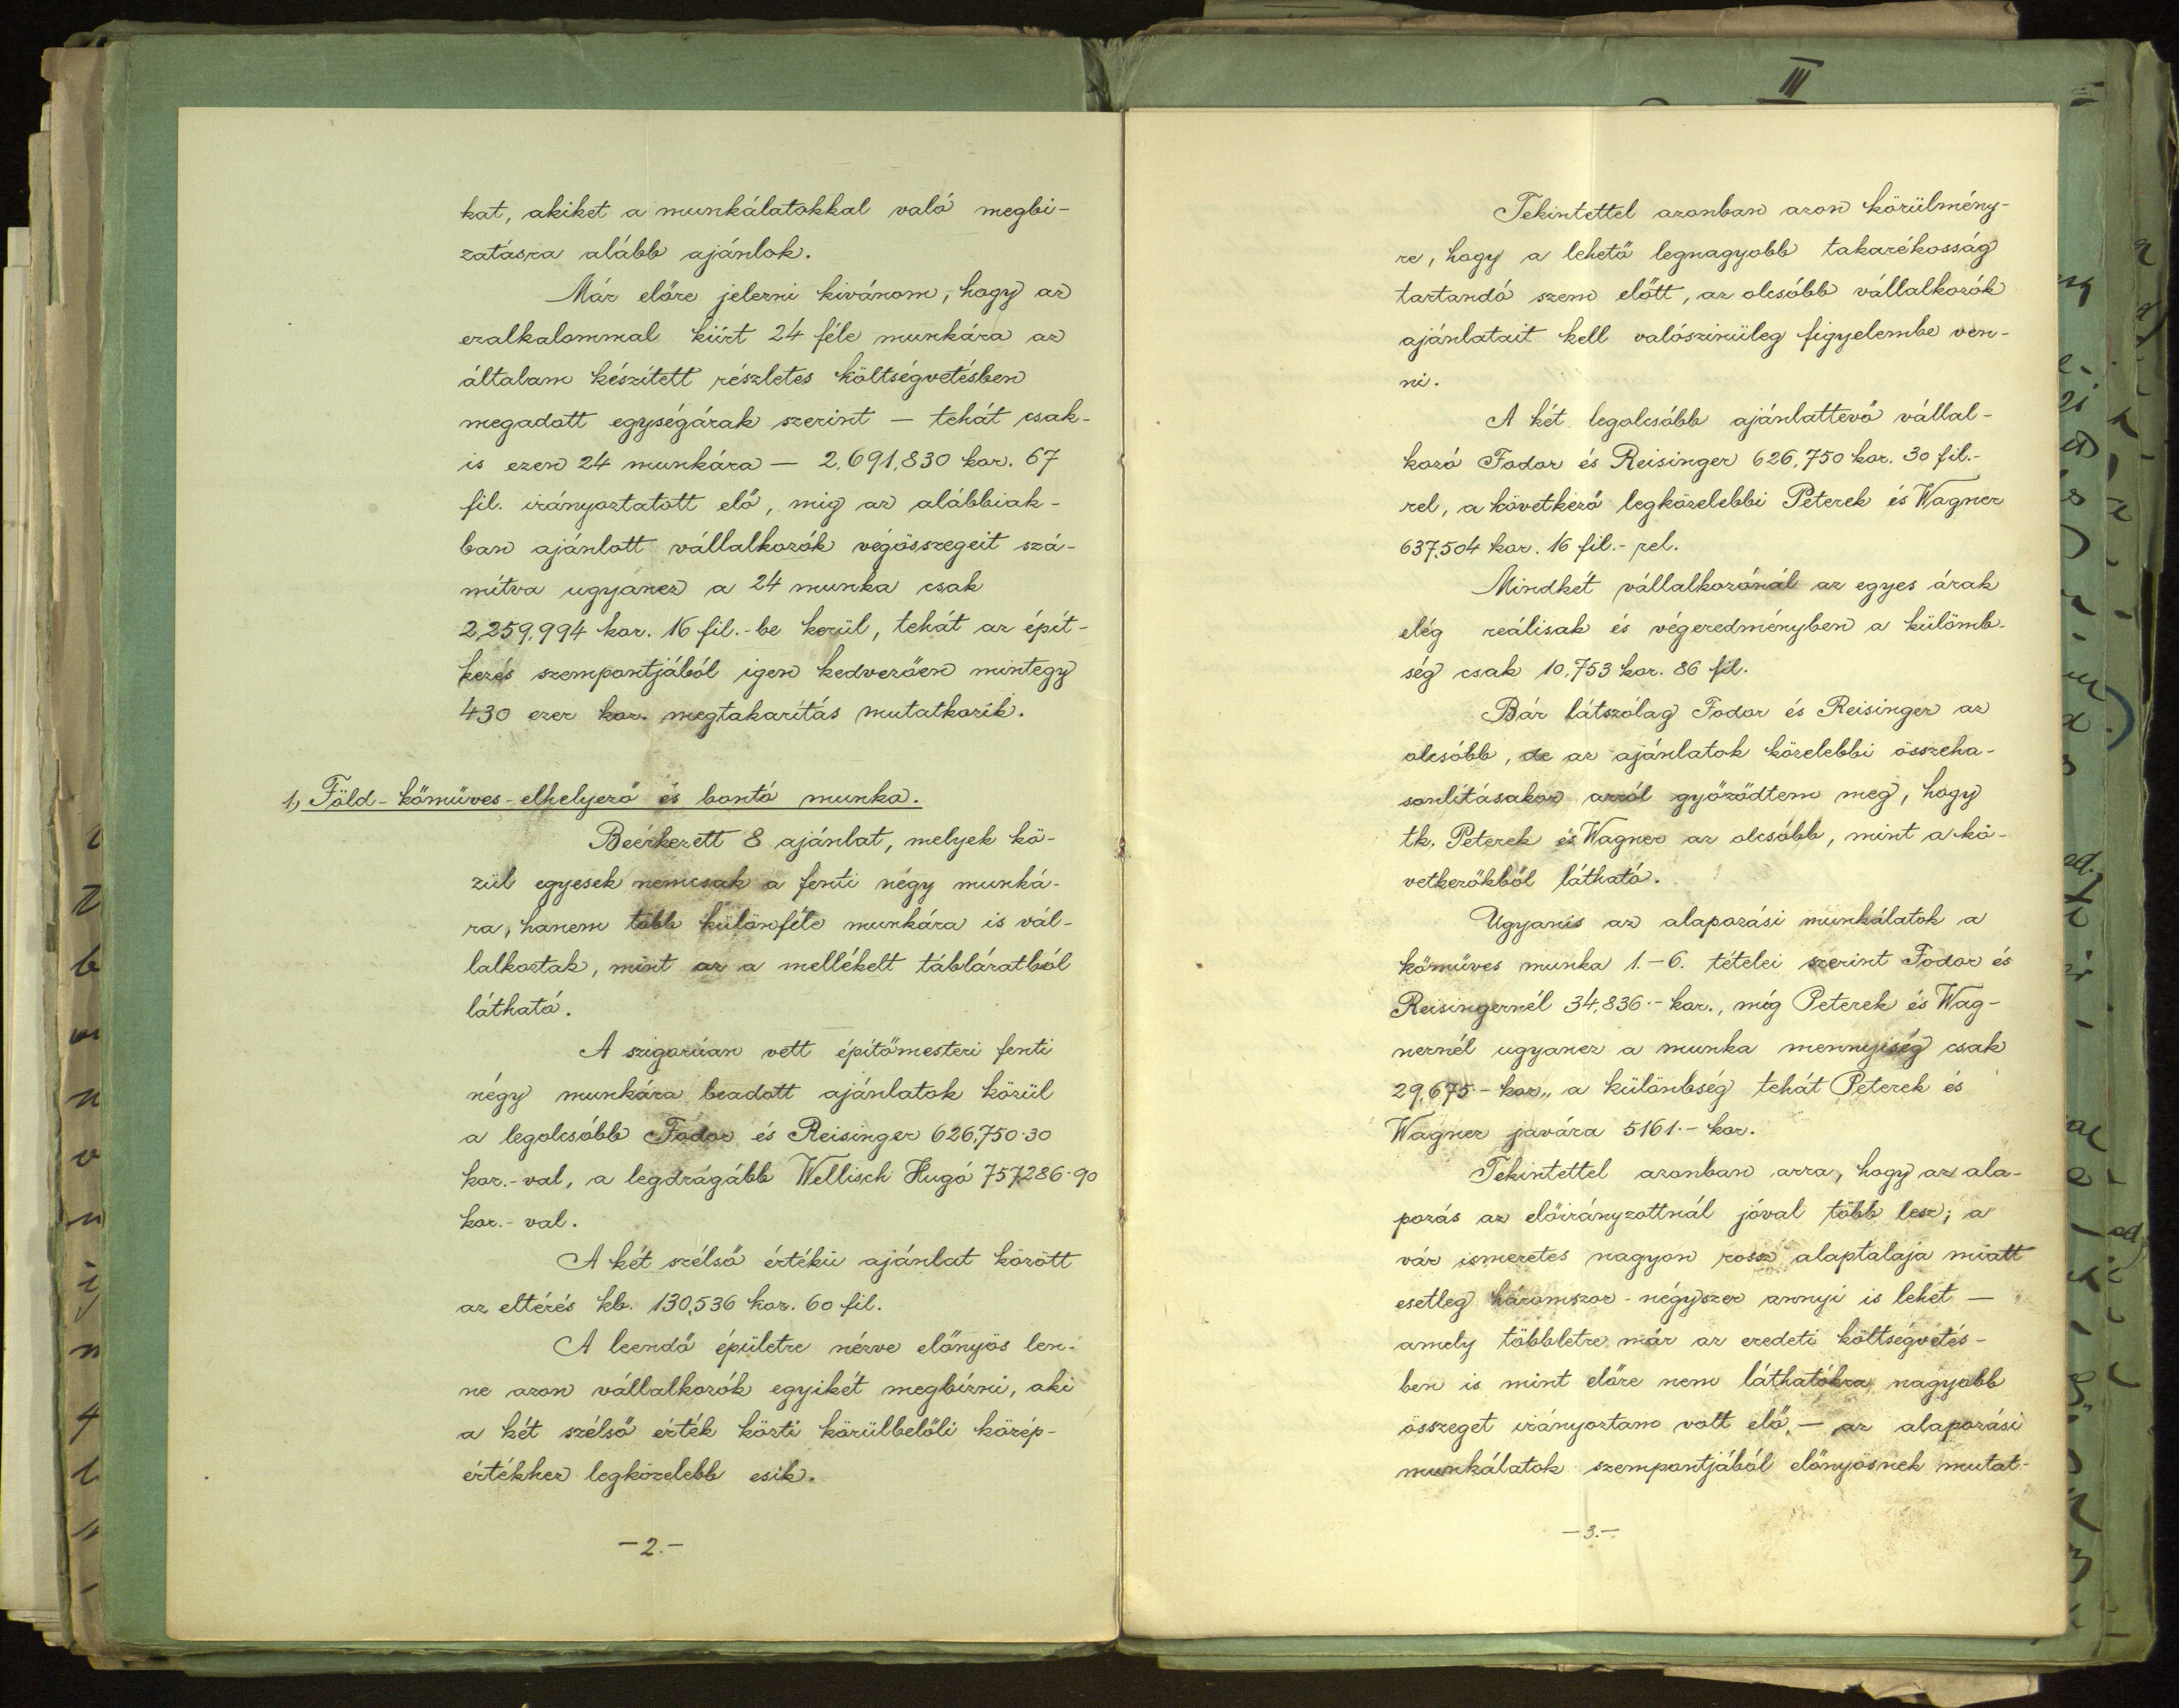 kat, akiket a munkálatokkal való megbi-
zatásra alább ajánlok.
Már előre jelezni kivánom, hogy az
ezalkalommal kiírt 24 féle munkára az
általam készített részletes költségvetésben
megadott egységárak szerint — tehát csak-
is ezen 24 munkára — 2,691,830 kor. 67
fil. irányoztatott elő, mig az alábbiak-
ban ajánlott vállalkozók végösszegeit szá-
mítva ugyanez a 24 munka csak
2,259,994 kor. 16 fil.-be kerül, tehát az épít-
kezés szempontjából igen kedvezően mintegy
430 ezer kor. megtakarítás mutatkozik.
1, Föld-kőmüves-elhelyező és bontó munka.
Beérkezett 8 ajánlat, melyek kö-
zül egyesek nemcsak a fenti négy munká-
ra, hanem több különféle munkára is vál-
lalkoztak, mint az a mellékelt táblázatból
látható.
A szigorúan vett építőmesteri fenti
négy munkára beadott ajánlatok közül
a legolcsóbb Fodor és Reisinger 626,750·30
kor.-val, a legdrágább Wellisch Hugó 757286·90
kor.-val.
A két szélső értékü ajánlat között
az eltérés kb. 130,536 kor. 60 fil.
A leendő épületre nézve előnyös len-
ne azon vállalkozók egyikét megbízni, aki
a két szélső érték közti körülbelőli közép-
értékhez legközelebb esik.
—2.—
III
Tekintettel azonban azon körülmény-
re, hogy a lehető legnagyobb takarékosság
tartandó szem előtt, az olcsóbb vállalkozók
ajánlatait kell valószinüleg figyelembe ven-
ni.
A két legolcsóbb ajánlattevő vállal-
kozó Fodor és Reisinger 626,750 kor. 30 fil.-
rel, a következő legközelebbi Peterek és Wagner
637,504 kor. 16 fil.-rel.
Mindkét vállalkozónál az egyes árak
elég reálisak és végeredményben a külömb-
ség csak 10,753 kor. 86 fil.
Bár látszólag Fodor és Reisinger az
olcsóbb, de az ajánlatok közelebbi összeha-
sonlításakor arról győződtem meg, hogy
tk. Peterek és Wagner az olcsóbb, mint a kö-
vetkezőkből látható.
Ugyanis az alapozási munkálatok a
kőmüves munka 1.-6. tételei szerint Fodor és
Reisingernél 34,836·- kor., míg Peterek és Wag-
nernél ugyanez a munka mennyiség csak
29,675·- kor., a különbség tehát Peterek és
Wagner javára 5161.- kor.
Tekintettel azonban arra, hogy az ala-
pozás az előirányzottnál jóval több lesz; a
vár ismeretes nagyon rossz alaptalaja miatt
esetleg háromszor-négyszer annyi is lehet —
amely többletre már az eredeti költségvetés-
ben is mint előre nem láthatókra nagyobb
összeget irányoztam volt elő, — az alapozási
munkálatok szempontjából előnyösnek mutat-
—3.—